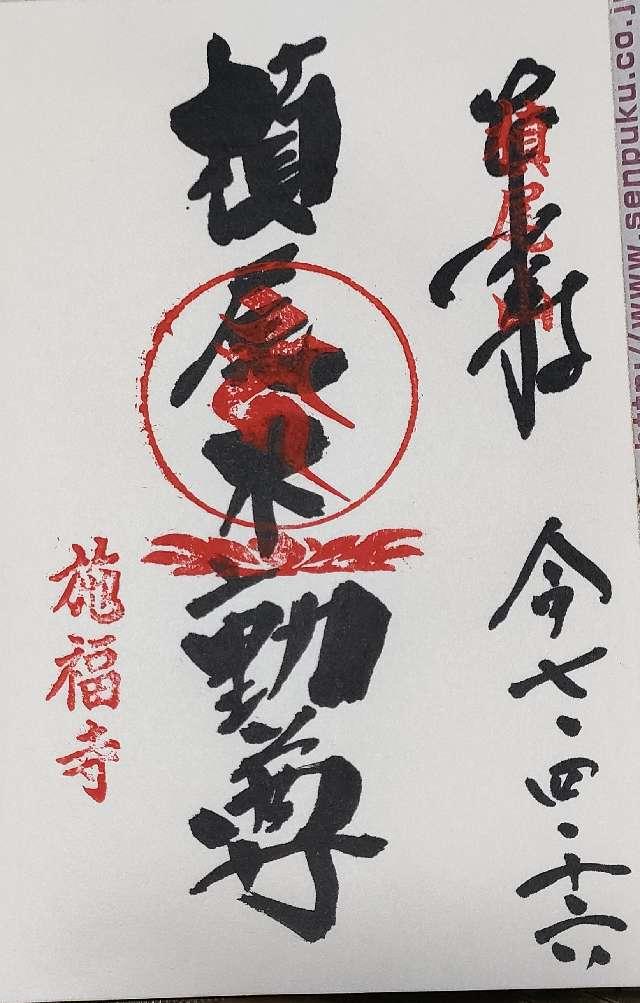 奉拝
槙尾山
令七・四・十六
槙尾不動尊
施福寺
www.senpuku.co.j